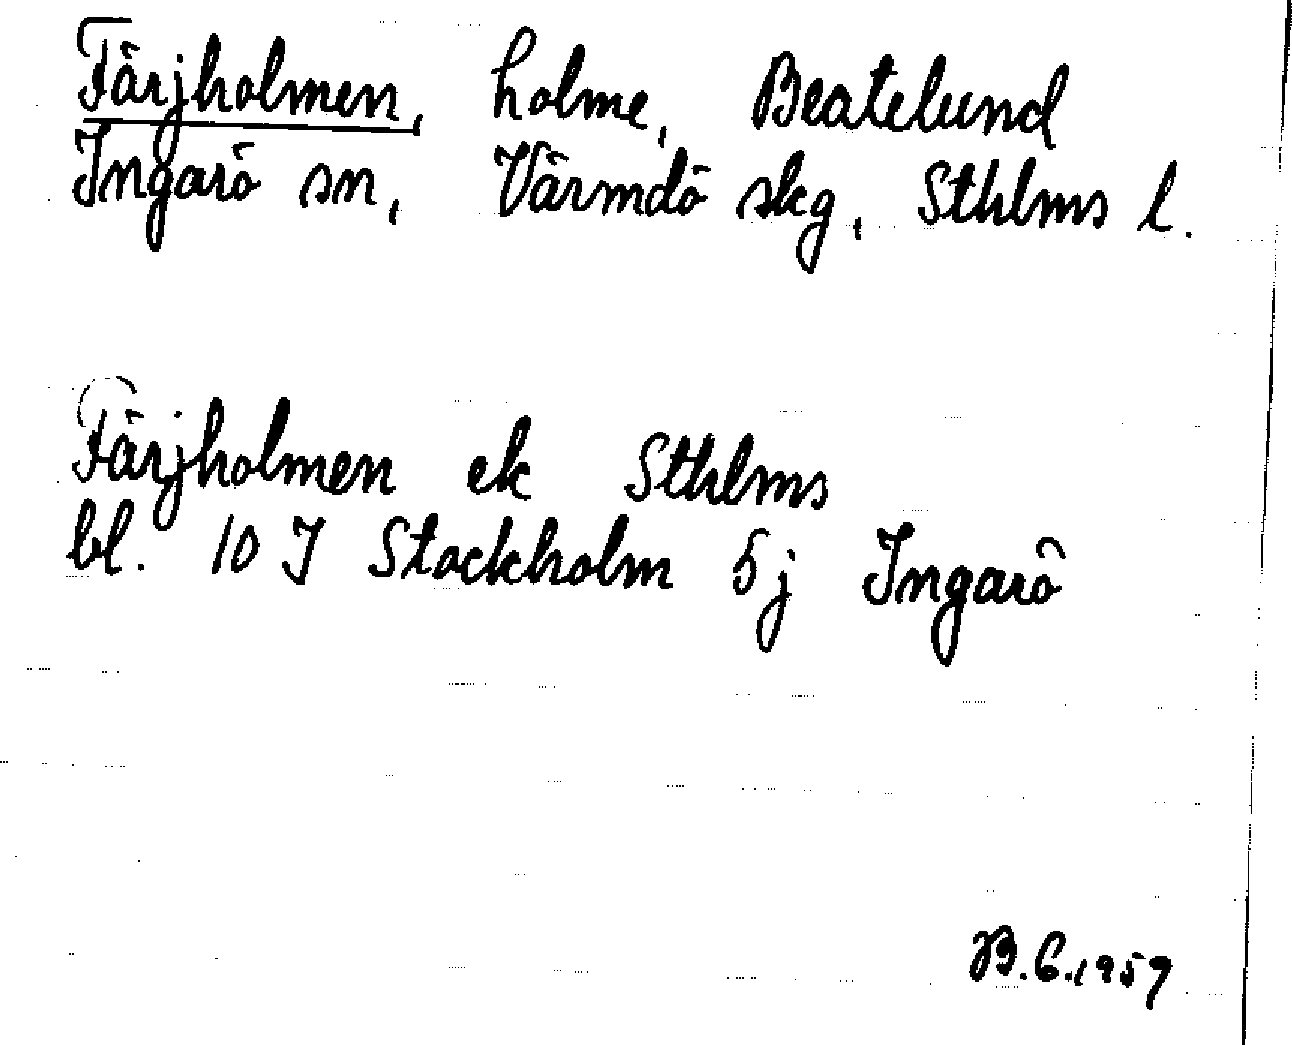 Färjholmen, holme, Beatelund
Ingarö sn, Värmdö skg, Sthlms l.
Färjholmen ek Sthlms
bl. 10 I Stockholm 5j Ingarö
B.G.1959